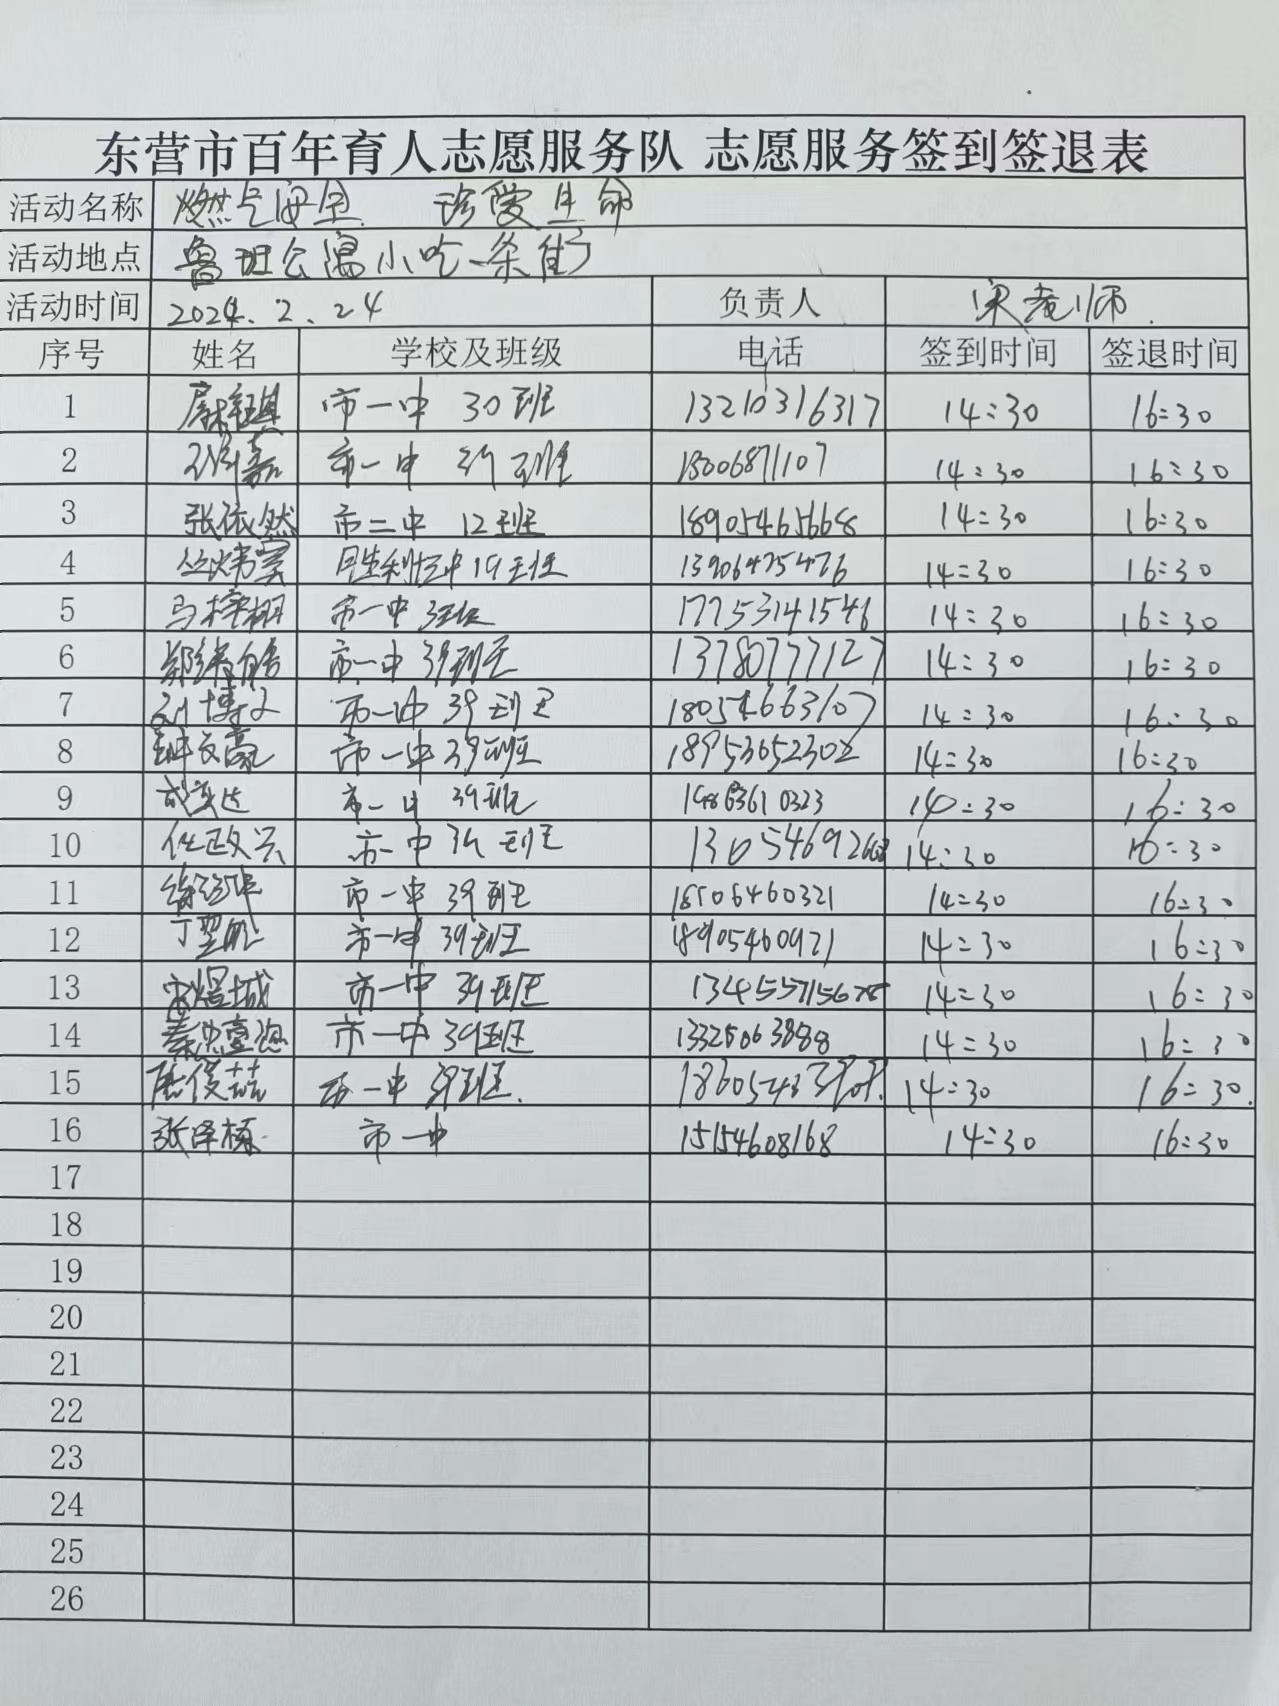 东营市百年育人志愿服务队 志愿服务签到签退表
活动名称 燃气安全 珍爱生命
活动地点 鲁班公寓小吃一条街
活动时间 2024.2.24 负责人 宋老师
序号 姓名 学校及班级 电话 签到时间 签退时间
1 市一中 30班 13210316317 14:30 16:30
2 市一中 班 18006871107 14:30 16:30
3 张依然 市二中 12班 18905465668 14:30 16:30
4 19班 13906475476 14:30 16:30
5 马梓栩 市一中 3班 17753141546 14:30 16:30
6 市一中 39班 13780777127 14:30 16:30
7 刘博文 市一中 39班 18054663107 14:30 16:30
8 钟文豪 市一中 39班 18953652302 14:30 16:30
9 成奕达 市一中 39班 14:30 16:30
10 任政兴 市一中 班 14:30 16:30
11 市一中 39班 18506460321 14:30 16:30
12 市一中 39班 18905460921 14:30 16:30
13 宋煜城 市一中 39班 14:30 16:30
14 市一中 39班 13325063888 14:30 16:30
15 市一中 39班. 14:30 16:30.
16 张泽栋 市一中 15154608168 14:30 16:30
17
18
19
20
21
22
23
24
25
26